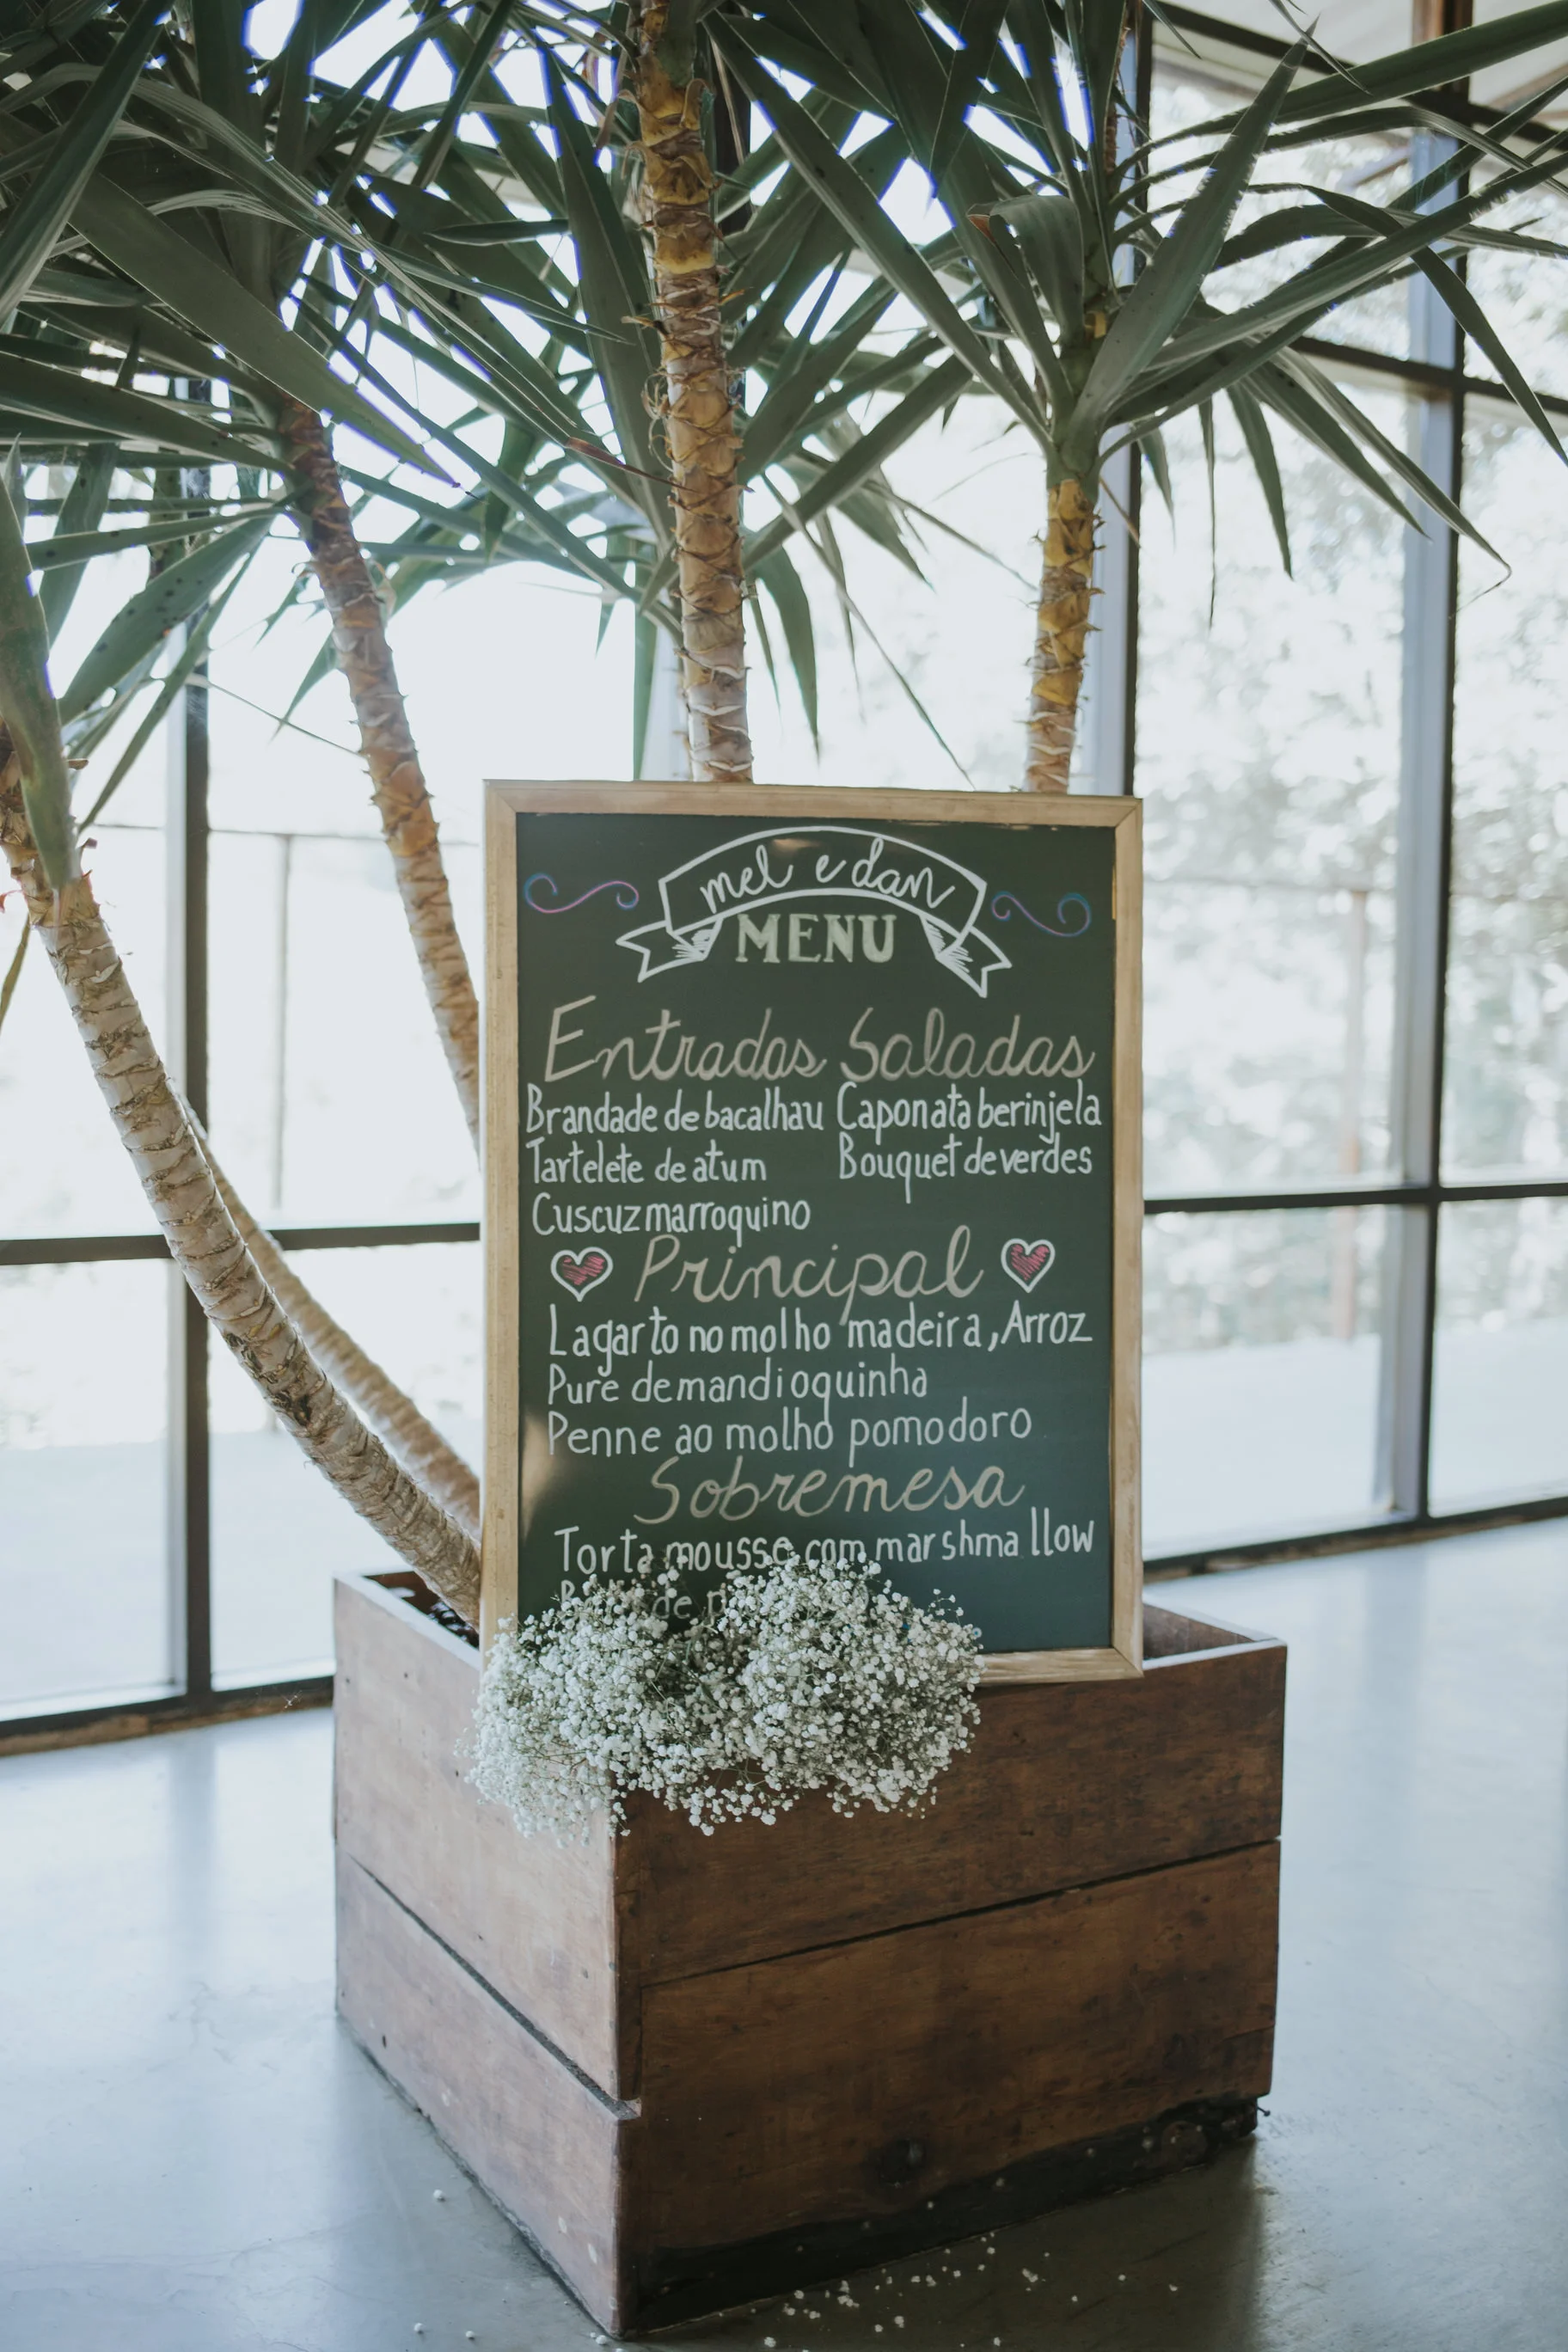 mel e dan
MENU
Entradas Saladas
Brandade de bacalhau Caponata berinjela
Tartelete de atum Bouquet de verdes
Cuscuz marroquino
Principal
Lagarto no molho madeira, Arroz
Pure de mandioquinha
Penne ao molho pomodoro
Sobremesa
Torta mousse com marshmallow
de